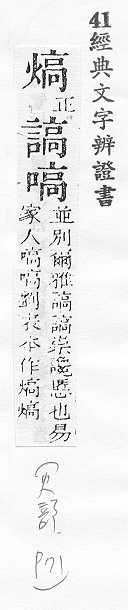 41經典文字辨證書
熇正
謞嗃並別爾雅謞謞崇讒慝也易
家人嗃嗃劉表本作熇熇
P71